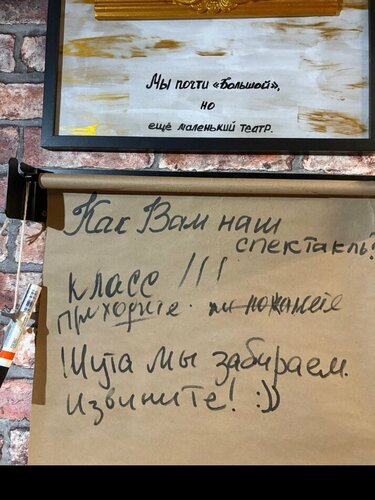 Мы почти «Большой»,
но
ещё маленький театр.
Как Вам наш
спектакль?
класс !!!
Приходите.
Шута мы забираем.
Извините! :))